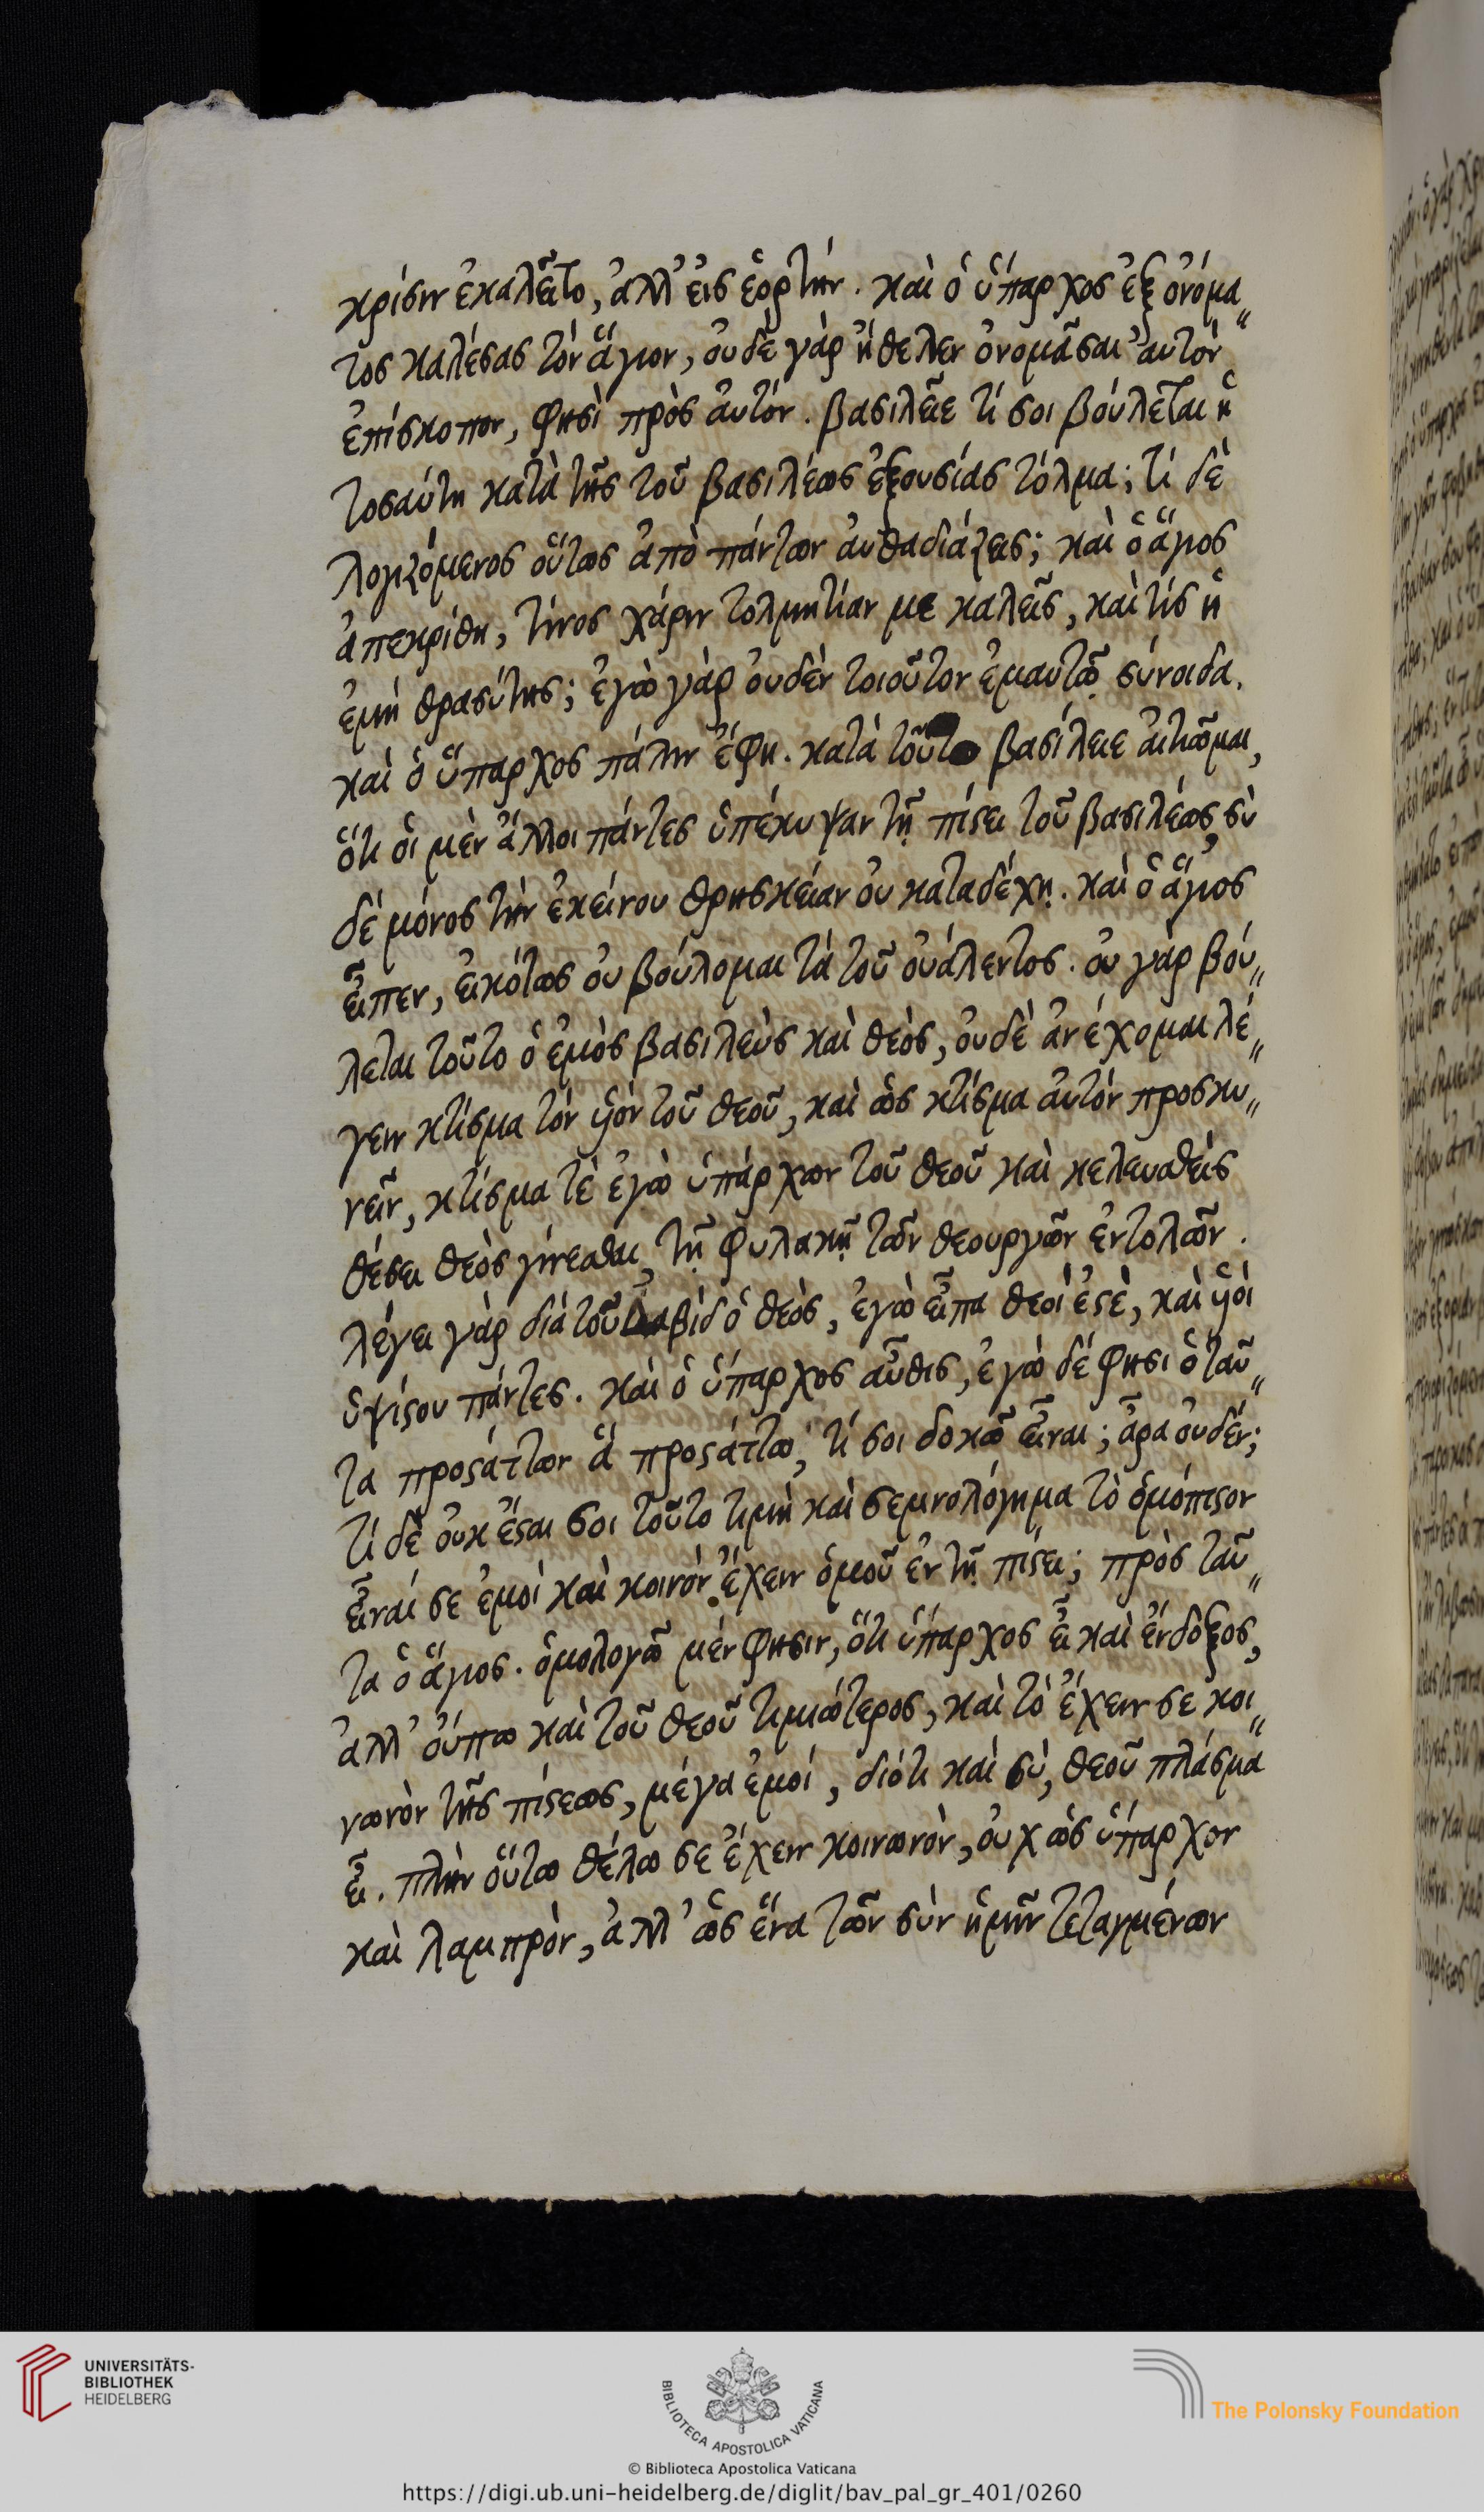 κρίσιν ἐκαλεῖτο, ἀλλ' εἰς ἑορτήν. καὶ ὁ ὕπαρχος ἐξ ὀνόμα„
τος καλέσας τὸν ἅγιον, οὐδὲ γὰρ ἤθελεν ὀνομᾶσαι αὐτὸν
ἐπίσκοπον, φησὶ πρὸς αὐτόν. βασίλειε τί σοι βούλεται ἡ
τοσαύτη κατὰ τῆς τοῦ βασιλέως ἐξουσίας τόλμα; τί δὲ
λογιζόμενος οὕτως ἀπὸ πάντων αὐθαδιάζεις; καὶ ὁ ἅγιος
ἀπεκρίθη, τίνος χάριν τολμητίαν με καλεῖς, καὶ τίς ἡ
ἐμὴ θρασύτης; ἐγὼ γὰρ οὐδὲν τοιοῦτον ἐμαυτῷ σύνοιδα.
καὶ ὁ ὕπαρχος πάλιν ἔφη. κατὰ τοῦτο βασίλειε αἰτιῶμαι,
ὅτι οἱ μὲν ἄλλοι πάντες ὑπέκυψαν τῇ πίστει τοῦ βασιλέως, σὺ
δὲ μόνος τὴν ἐκείνου θρησκείαν οὐ καταδέχῃ. καὶ ὁ ἅγιος
εἶπεν, εἰκότως οὐ βούλομαι τὰ τοῦ οὐάλεντος. οὐ γὰρ βού„
λεται τοῦτο ὁ ἐμὸς βασιλεὺς καὶ θεὸς, οὐδὲ ἀνέχομαι λέ„
γειν κτίσμα τὸν υἱὸν τοῦ θεοῦ, καὶ ὡς κτίσμα αὐτὸν προσκυ„
νεῖν, κτίσμα τὲ ἐγὼ ὑπάρχων τοῦ θεοῦ καὶ κελευσθεὶς
θέσει θεὸς γίνεσθαι, τῇ φυλακῇ τῶν θεουργῶν ἐντολῶν.
λέγει γὰρ διὰ τοῦ Δαβὶδ ὁ θεὸς, ἐγὼ εἶπα θεοί ἐστὲ, καὶ υἱοὶ
ὑψίστου πάντες. καὶ ὁ ὕπαρχος αὖθις, ἐγὼ δέ φησι ὁ ταῦ„
τα προστάττων ἃ προστάττω, τί σοι δοκῶ εἶναι; ἆρα οὐδέν;
τί δὲ οὐκ ἔσται σοι τοῦτο τιμὴ καὶ σεμνολόγημα τὸ ὁμόπιστον
εἶναί σε ἐμοὶ καὶ κοινὸν ἔχειν ὁμοῦ ἐν τῇ πίστει; πρὸς ταῦ„
τα ὁ ἅγιος. ὁμολογῶ μέν φησιν, ὅτι ὕπαρχος εἶ καὶ ἔνδοξος,
ἀλλ' οὔπω καὶ τοῦ θεοῦ τιμιώτερος, καὶ τὸ ἔχειν σε κοι„
νωνὸν τῆς πίστεως, μέγα ἐμοί, διότι καὶ σὺ, θεοῦ πλάσμα
εἶ. πλὴν οὕτω θέλω σε ἔχειν κοινωνὸν, οὐχ ὡς ὕπαρχον
καὶ λαμπρὸν, ἀλλ' ὡς ἕνα τῶν σὺν ἡμῖν τεταγμένων
UNIVERSITÄTS-
BIBLIOTHEK
HEIDELBERG
BIBLIOTECA APOSTOLICA VATICANA
The Polonsky Foundation
© Biblioteca Apostolica Vaticana
https://digi.ub.uni-heidelberg.de/diglit/bav_pal_gr_401/0260